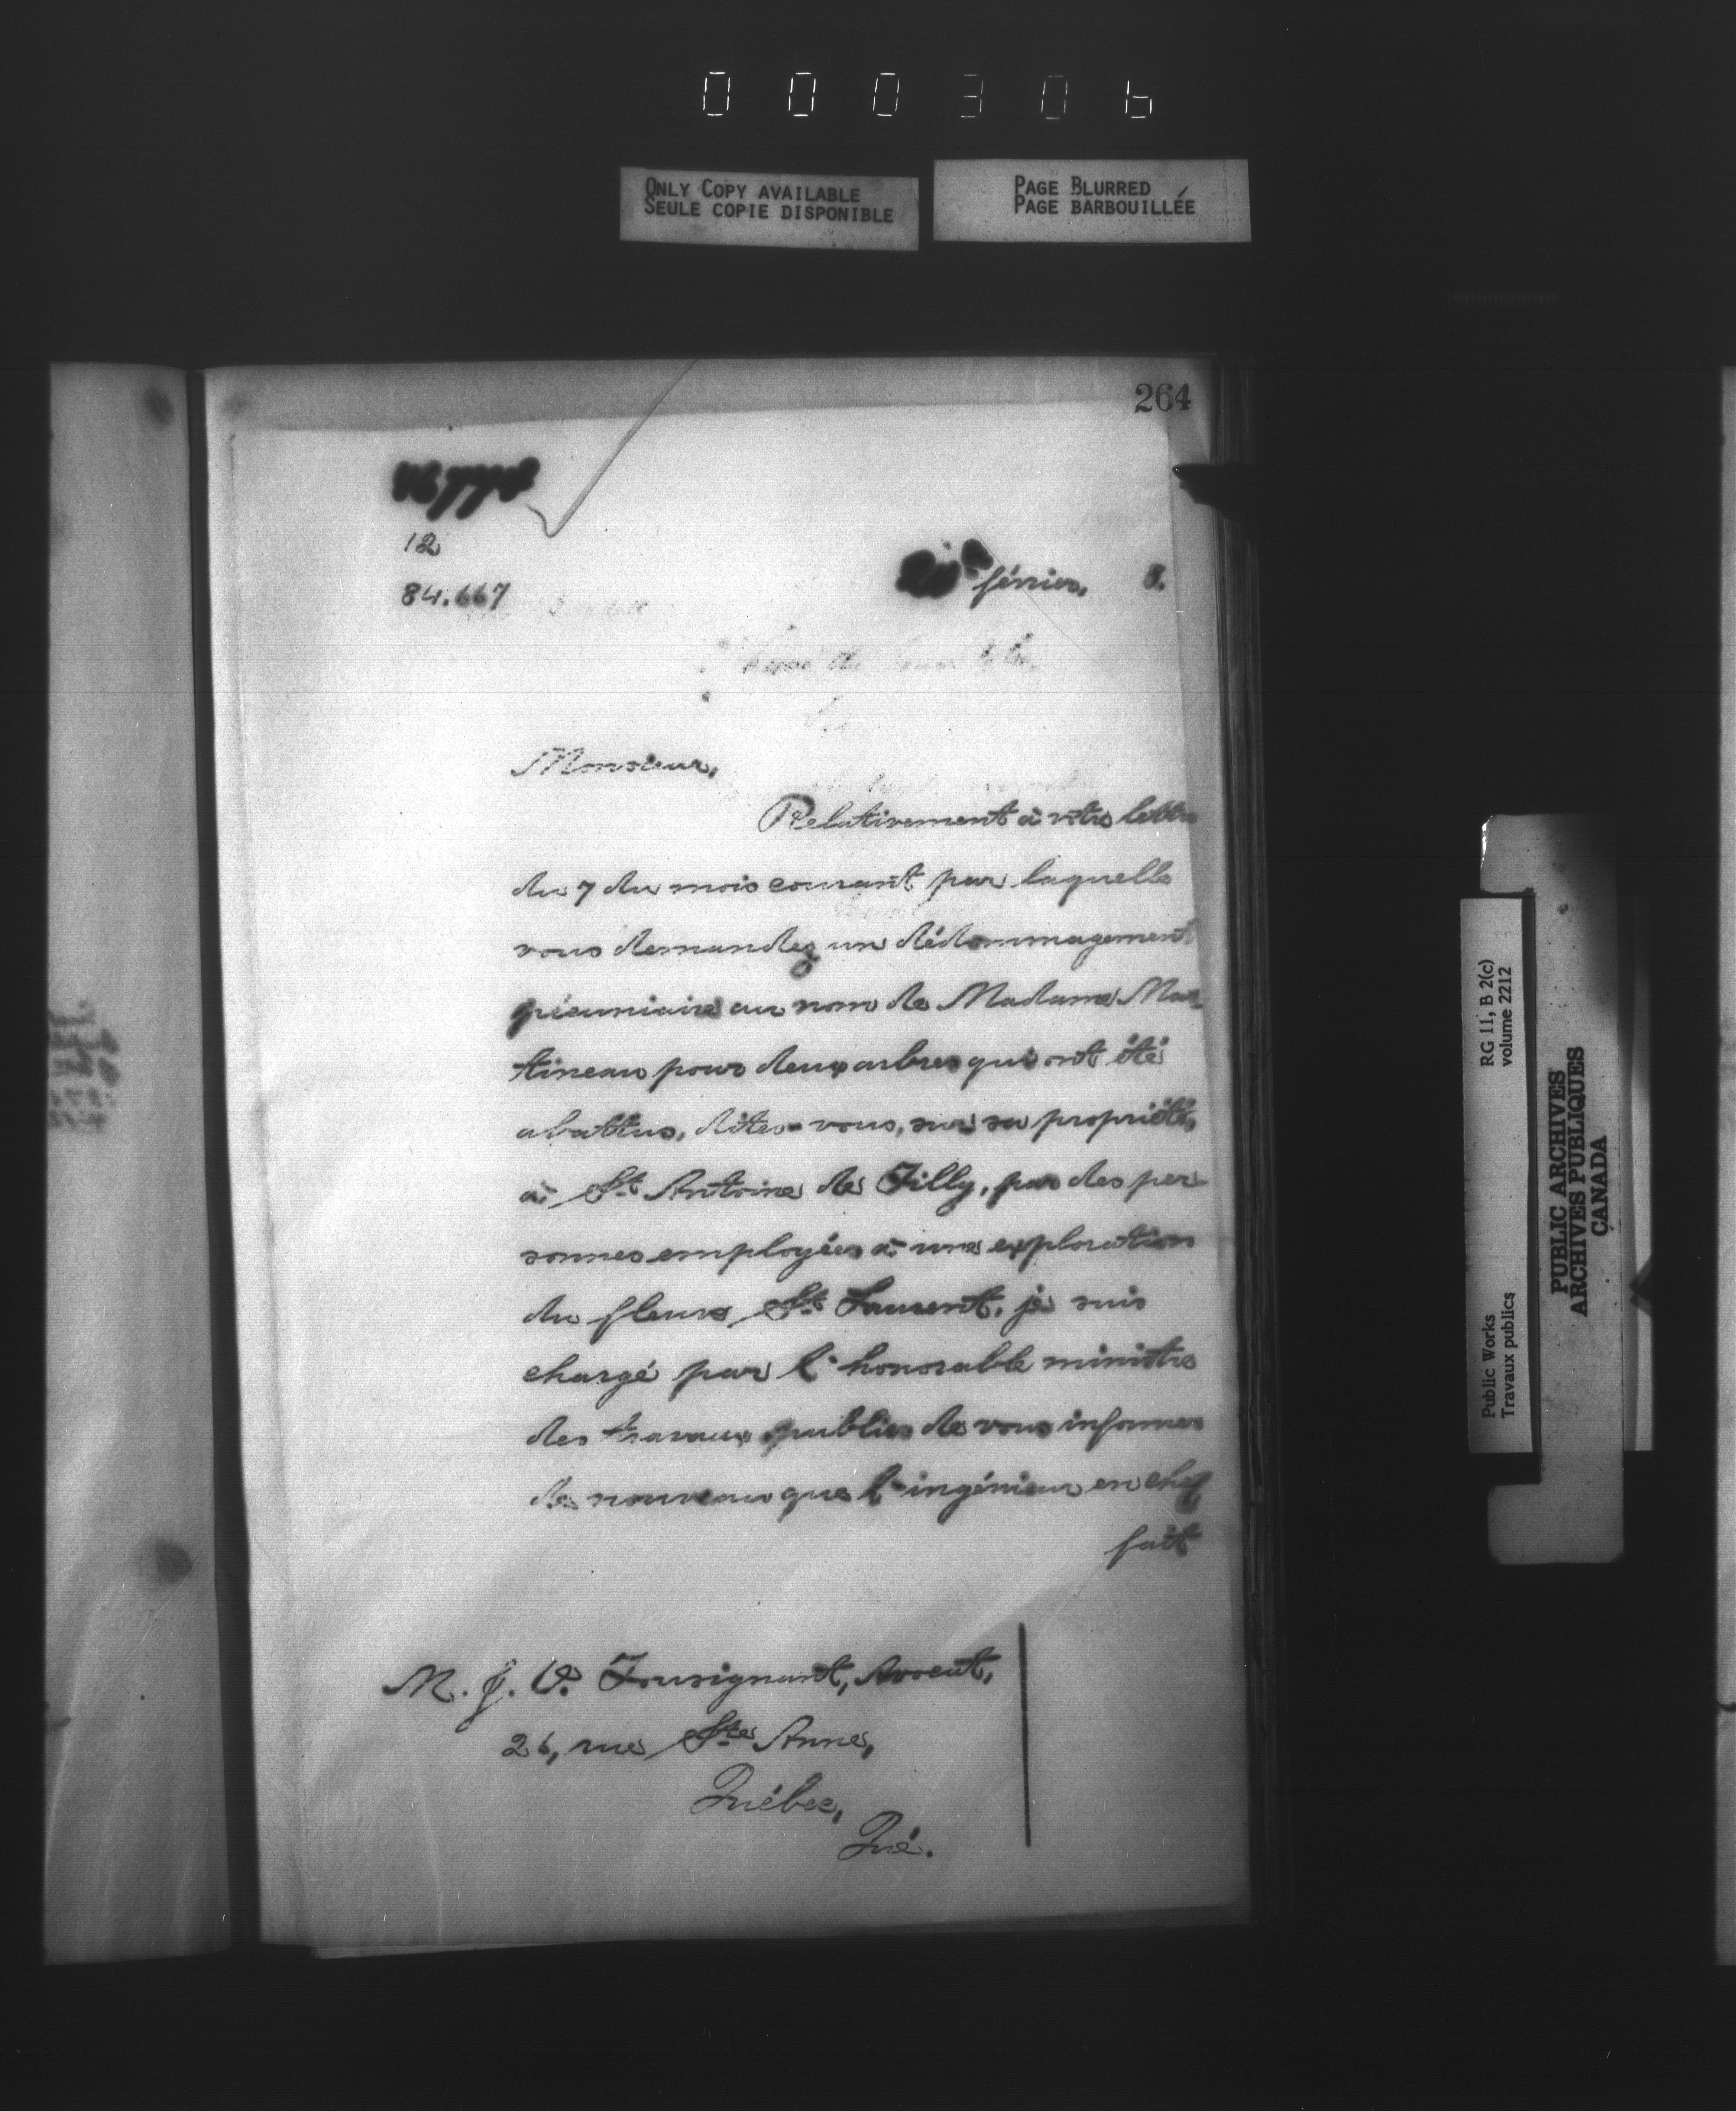 000306
ONLY COPY AVAILABLE
SEULE COPIE DISPONIBLE
PAGE BLURRED
PAGE BARBOUILLÉE
264
12
84.667
février, 8.
Monsieur,
Relativement à votre lettre
du 7 du mois courant par laquelle
vous demandez un dédommagement
pécuniaire au nom de Madame Mar-
tineau pour deux arbres qui ont été
abattus, dites-vous, sur sa propriété,
à St Antoine de Tilly, par des per-
sonnes employées à une exploration
du fleuve St Laurent, je suis
chargé par l'honorable ministre
des travaux publics de vous informer
de nouveau que l'ingénieur en chef
fait
M. J. O. Tousignant, Avocat,
26, rue Ste Anne,
Québec,
Qué.
Public Works
Travaux publics
RG 11, B 2(c)
volume 2212
PUBLIC ARCHIVES
ARCHIVES PUBLIQUES
CANADA